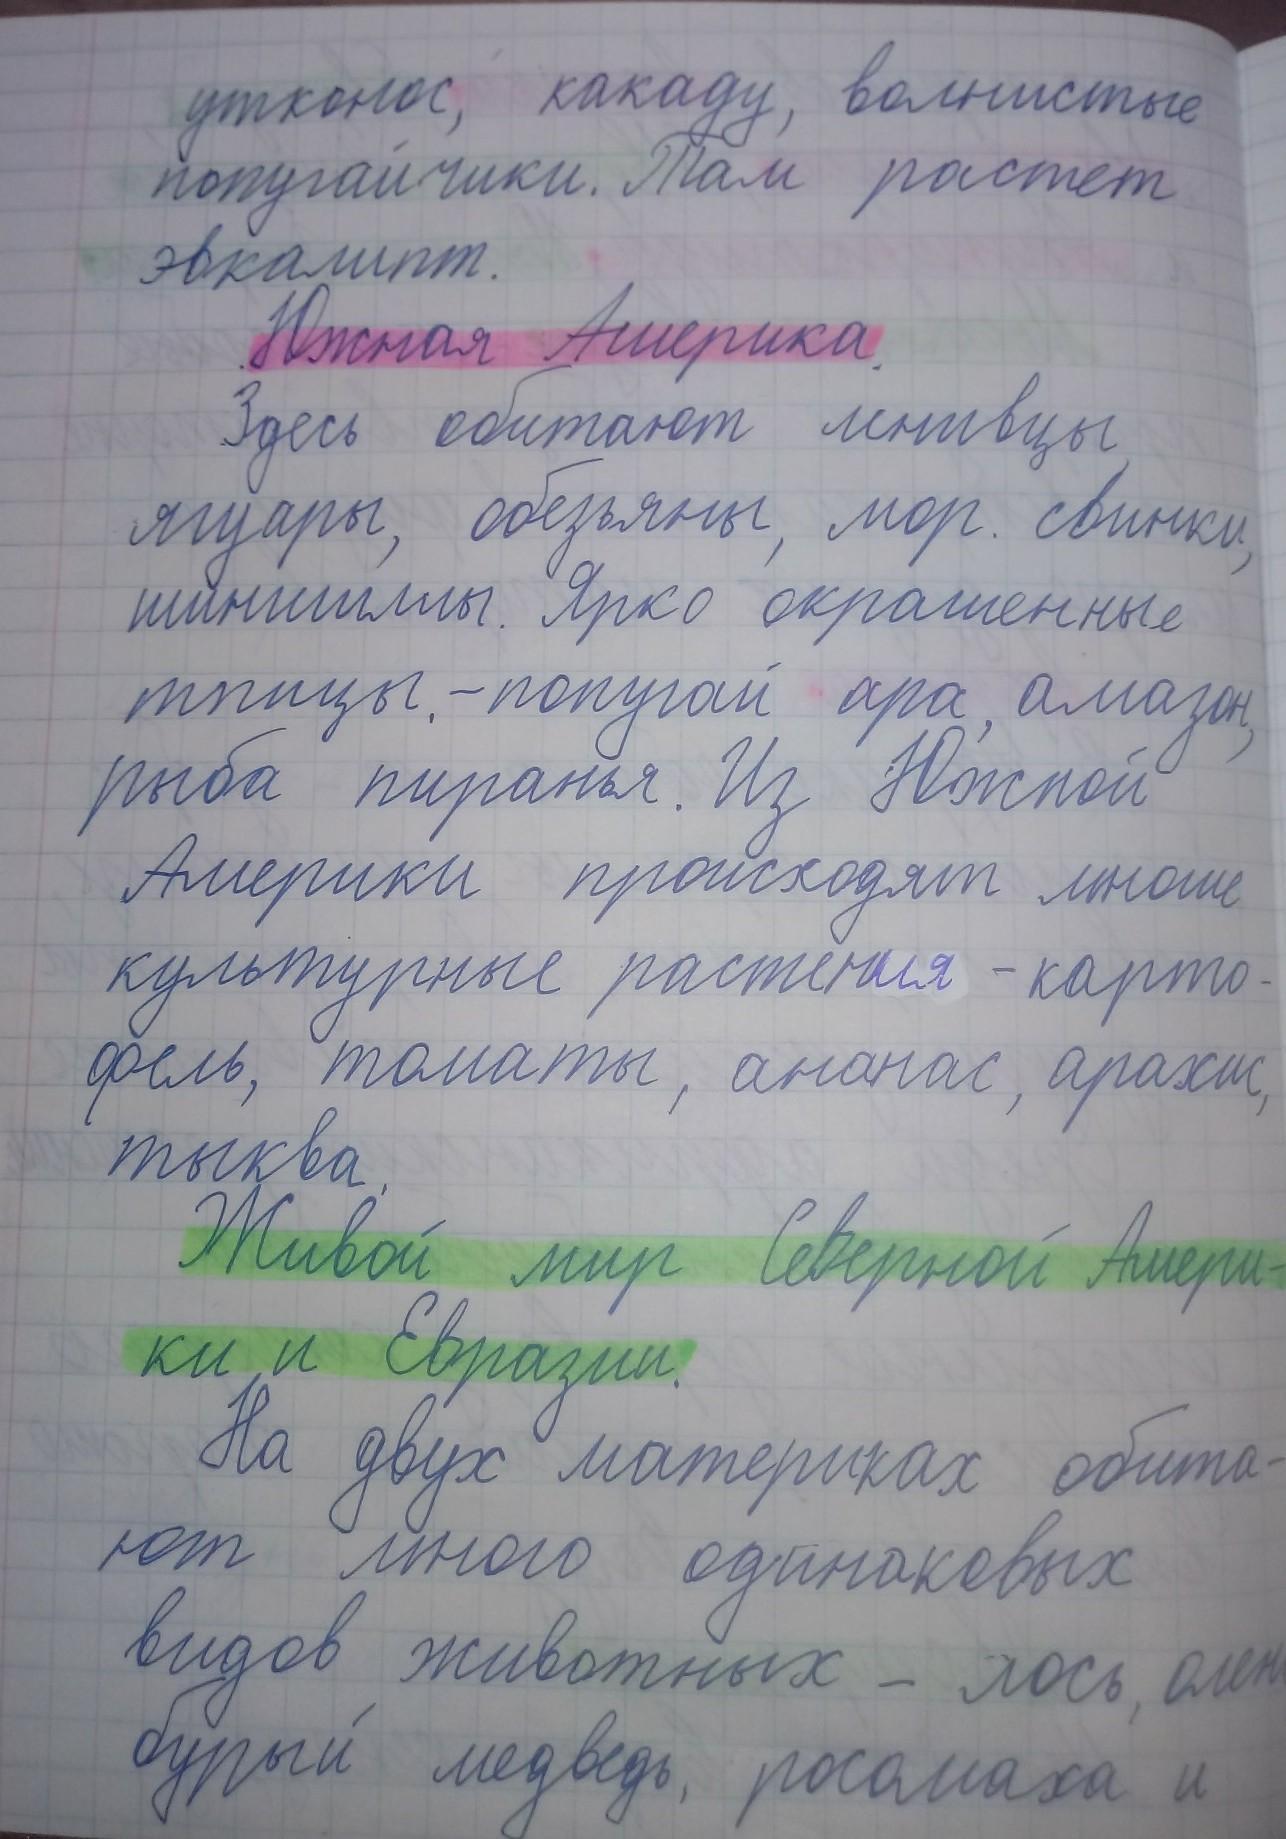 утконос, какаду, волнистые
попугайчики. Там растет
эвкалипт.
Южная Америка.
Здесь обитают ленивцы,
ягуары, обезьяны, мор. свинки,
шиншиллы. Ярко окрашенные
птицы, - попугай ара, амазон,
рыба пиранья. Из Южной
Америки происходят многие
культурные растения - карто-
фель, томаты, ананас, арахис,
тыква.
Живой мир Северной Амери-
ки и Евразии.
На двух материках обита-
ют много одинаковых
видов животных - лось, олень
бурый медведь, росомаха и